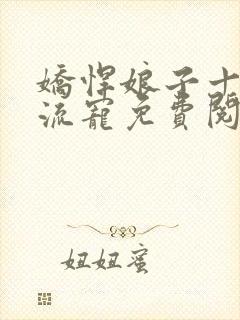 嬌悍娘子十
流寵免費閱
妞妞蜜